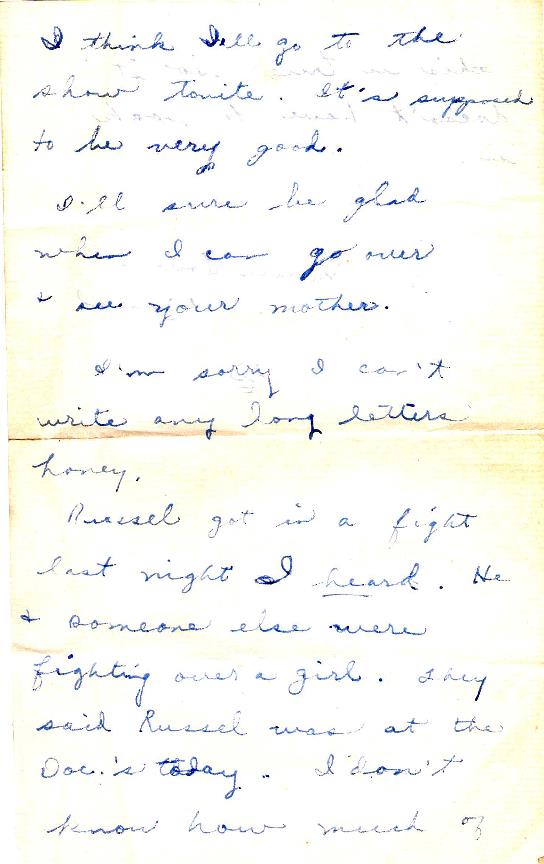 I think I'll go to the
show tonite. It's supposed
to be very good.
I'll sure be glad
when I can go over
& see your mother.
I'm sorry I can't
write any long letters
honey.
Russel got in a fight
last night I heard. He
& someone else were
fighting over a girl. They
said Russel was at the
Doc.'s today. I don't
know how much of